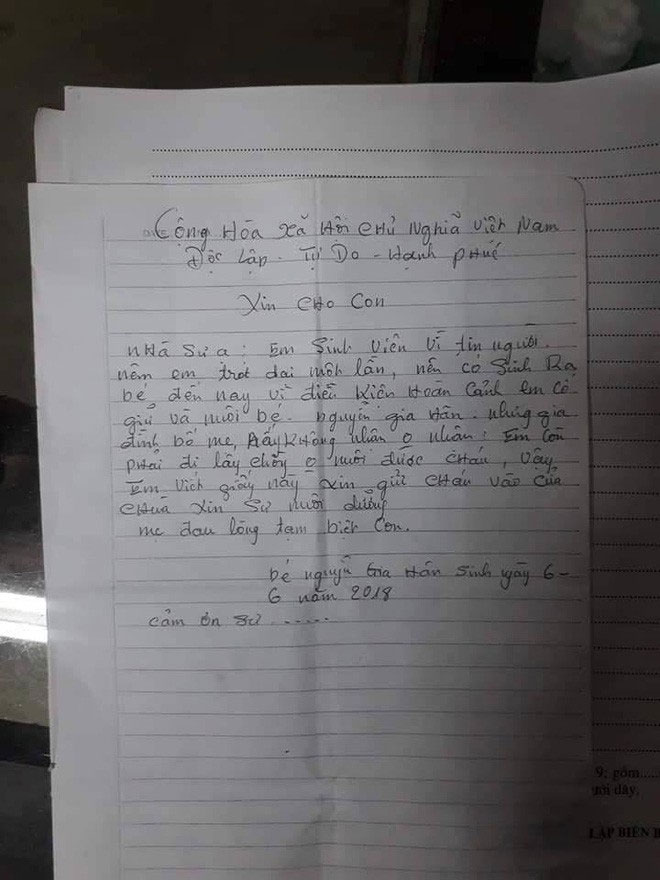 Cộng Hòa Xã Hôi Chủ Nghiã Việt Nam
Độc Lập - Tự Do - Hạnh Phúc
Xin Cho Con
Nhà Sư ạ: Em Sinh Viên Vì tin người.
nêm em trót dai môt lần, nên có Sinh Ra
bé đến nay vì điều kiên Hoàn Cảnh em Cố
giữ và nuôi bé. nguyễn gia Hân. nhưng gia
đình bố mẹ, Ấy Không nhân o nhân: Em Còn
phải đi lấy chồng o nuôi được cháu, vây
Em viêt giấy này xin gửi cháu vào Cửa
chuà Xin Sư nuôi dưỡng
mẹ đau lòng tạm biệt Con.
bé nguyễ Gia Hân sinh ngày 6-
6 năm 2018
cảm ơn sư ......
9; gồm.....
dưới dây.
LẬP BIÊN B